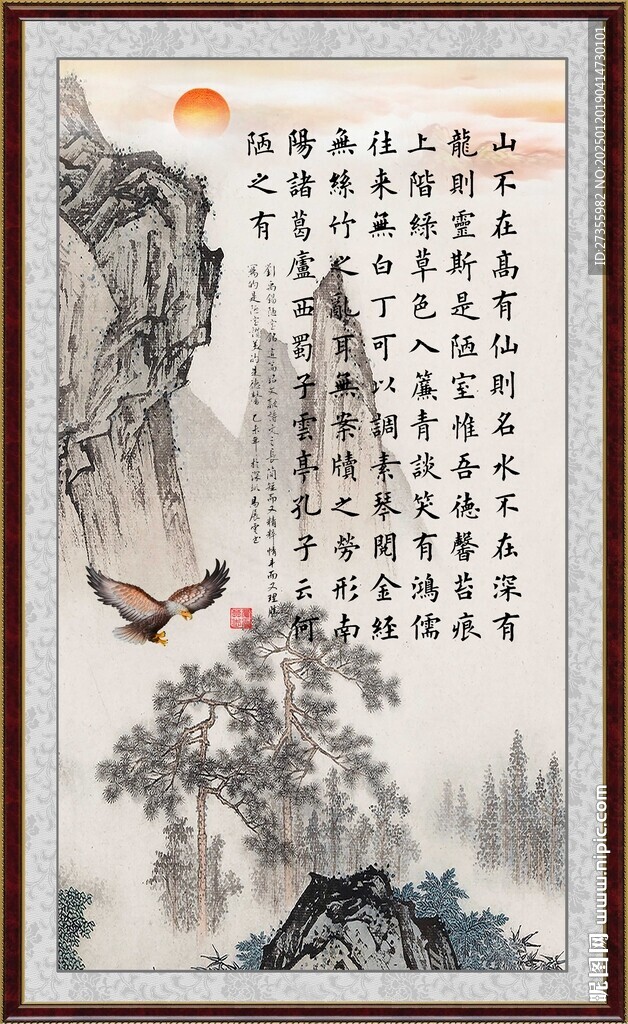 山不在髙有仙則名水不在深有
龍則靈斯是陋室惟吾德馨苔痕
上階綠草色入簾青談笑有鴻儒
往來無白丁可以調素琴閱金經
無絲竹之亂耳無案牘之勞形南
陽諸葛廬西蜀子雲亭孔子云何
陋之有
劉禹錫陋室銘
乙未年於深圳
ID:27355982 NO:20250120190414730101
昵图网 www.nipic.com